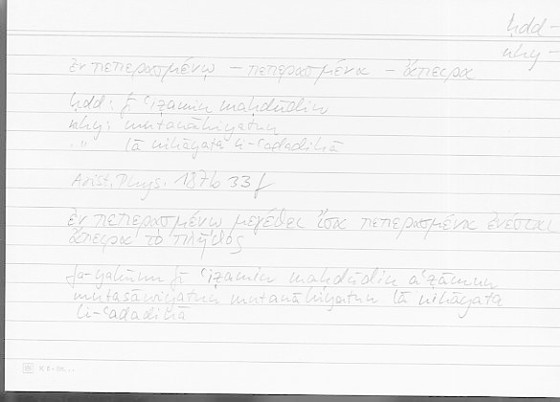 ḥdd –
nhy –
ἐν πεπερασμένῳ – πεπερασμένα – ἄπειρα
ḥdd: fī ʿiẓamin maḥdūdin
nhy: mutanāhiyatun
"" lā nihāyata li-ʿadadihā
Arist. Phys. 187b 33 f
ἐν πεπερασμένῳ μεγέθει ἴσα πεπερασμένα ἐνέσται
ἄπειρα τὸ πλῆθος
fa-yakūnu fī ʿiẓamin maḥdūdin aʿẓāmun
mutasāwiyatun mutanāhiyatun lā nihāyata
li-ʿadadihā